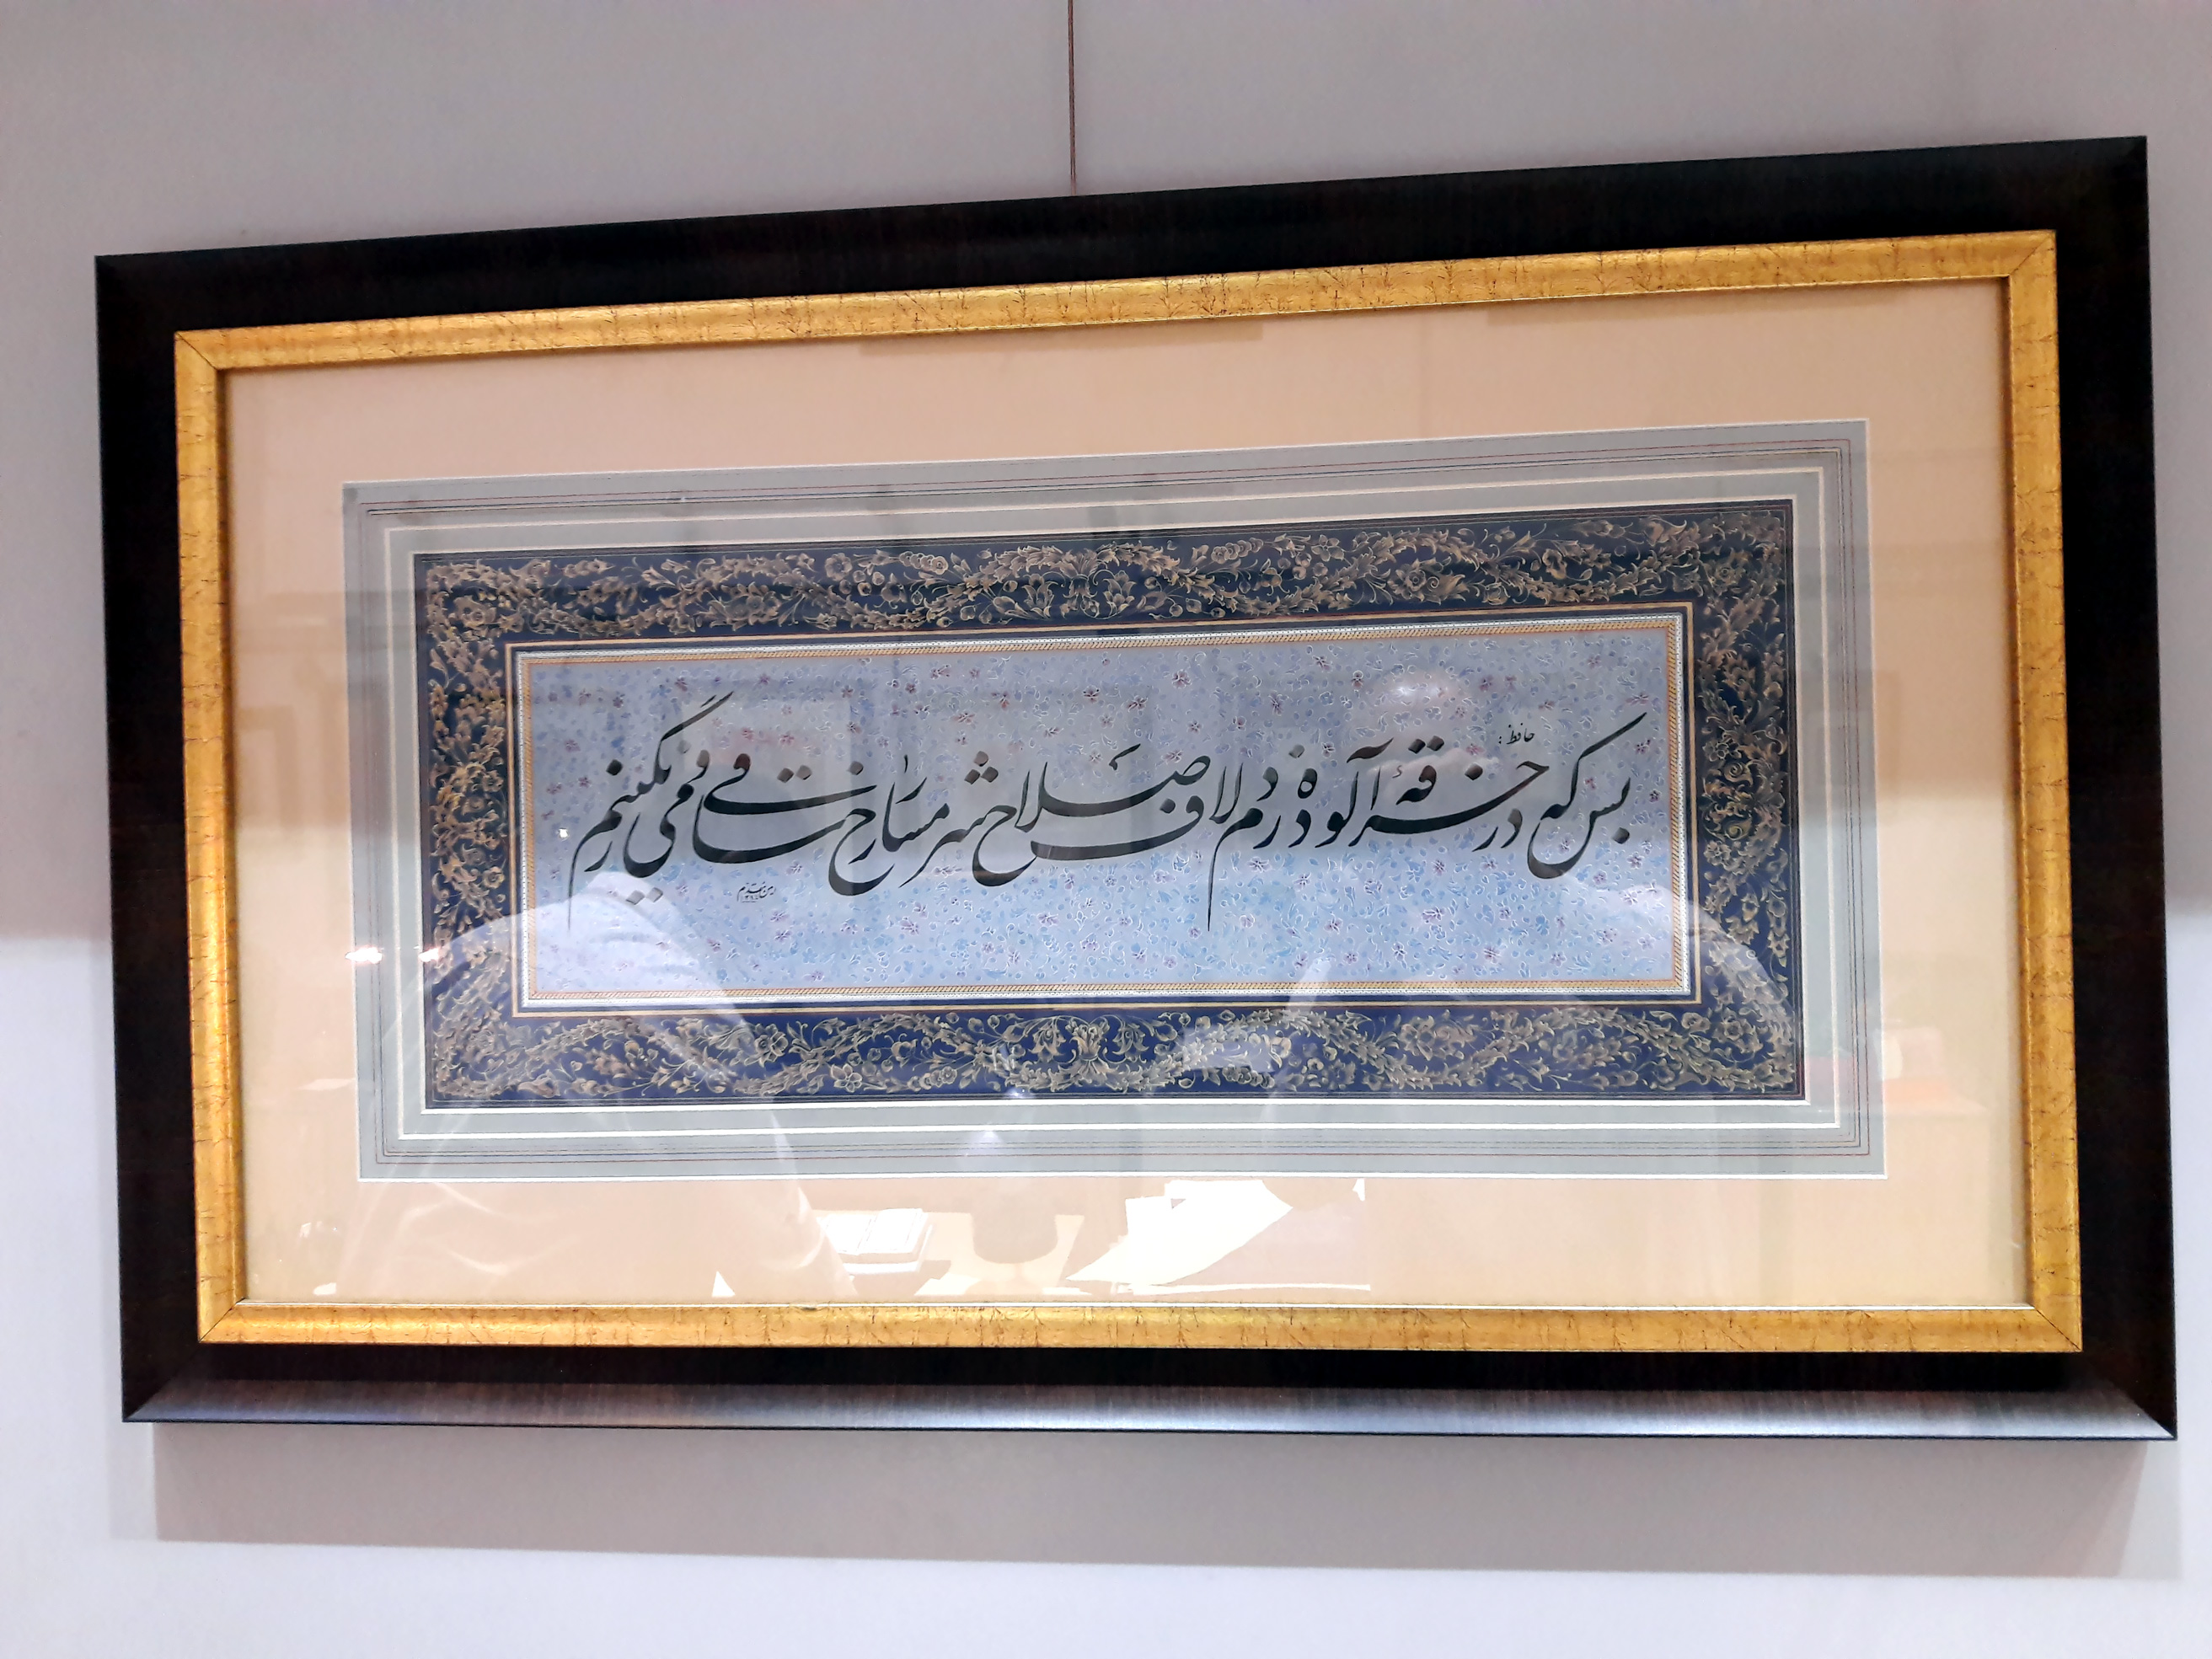 حافظ:
بس که در خرقهٔ آلوده زدم لاف صلاح شرمسار از رخ ساقی و می رنگینم